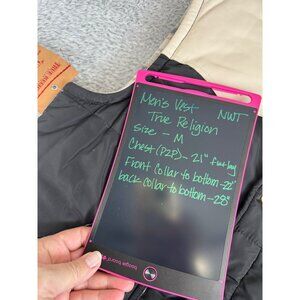 Men's Vest NWT
True Religion
size - M
Chest (P2P) - 21"
Front Collar to bottom - 22"
back Collar to bottom - 28"
boogie board